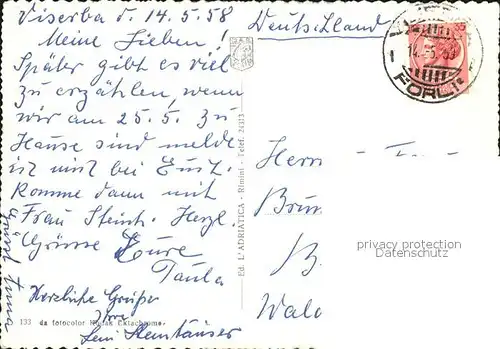 Viserba d. 14.5.58
Deutschland
Meine Lieben!
Später gibt es viel
zu erzählen, wenn
wir am 25.5. zu
Hause sind melde
ich mich bei Euch.
Komme dann mit
Frau Steinh. Herzl.
Grüsse Eure
Paula
Herzliche Grüße
Ihre
Leni Steinhäuser
Anna
133 da fotocolor Kodak Ektachrome
Ed. L'ADRIATICA - Rimini - Telef. 24313
35
14.5.58
FORLI
Herrn
privacy protection
Datenschutz